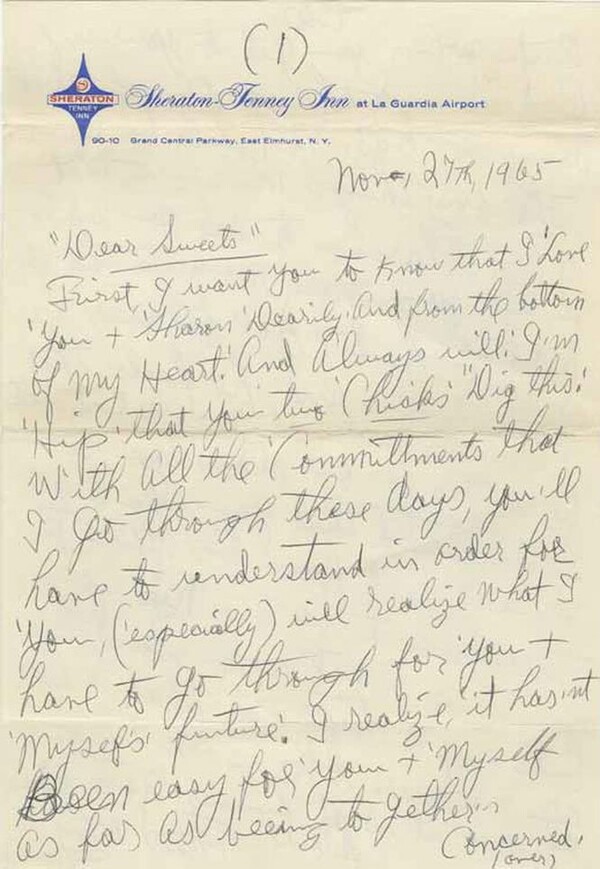 (1)
SHERATON
TENNEY
INN
Sheraton-Tenney Inn at La Guardia Airport
90-10 Grand Central Parkway, East Elmhurst, N. Y.
Nov., 27th, 1965
"Dear Sweets"
First, I want you to know that I 'Love
'You + 'Sharon' Dearily. And from the bottom
of my Heart.' And Always will.' I'm
'Hip' that your two 'Chicks' "Dig this.'
With all the 'Committments that
I go through these days, you'll
have to understand in order for
'You, ('especially) will realize what I
have to go through for 'You +
'Myself's' funture.' I realize, it has'nt
Been easy for 'You + 'Myself
as far as beeing to gether's
Concerned.
(over)